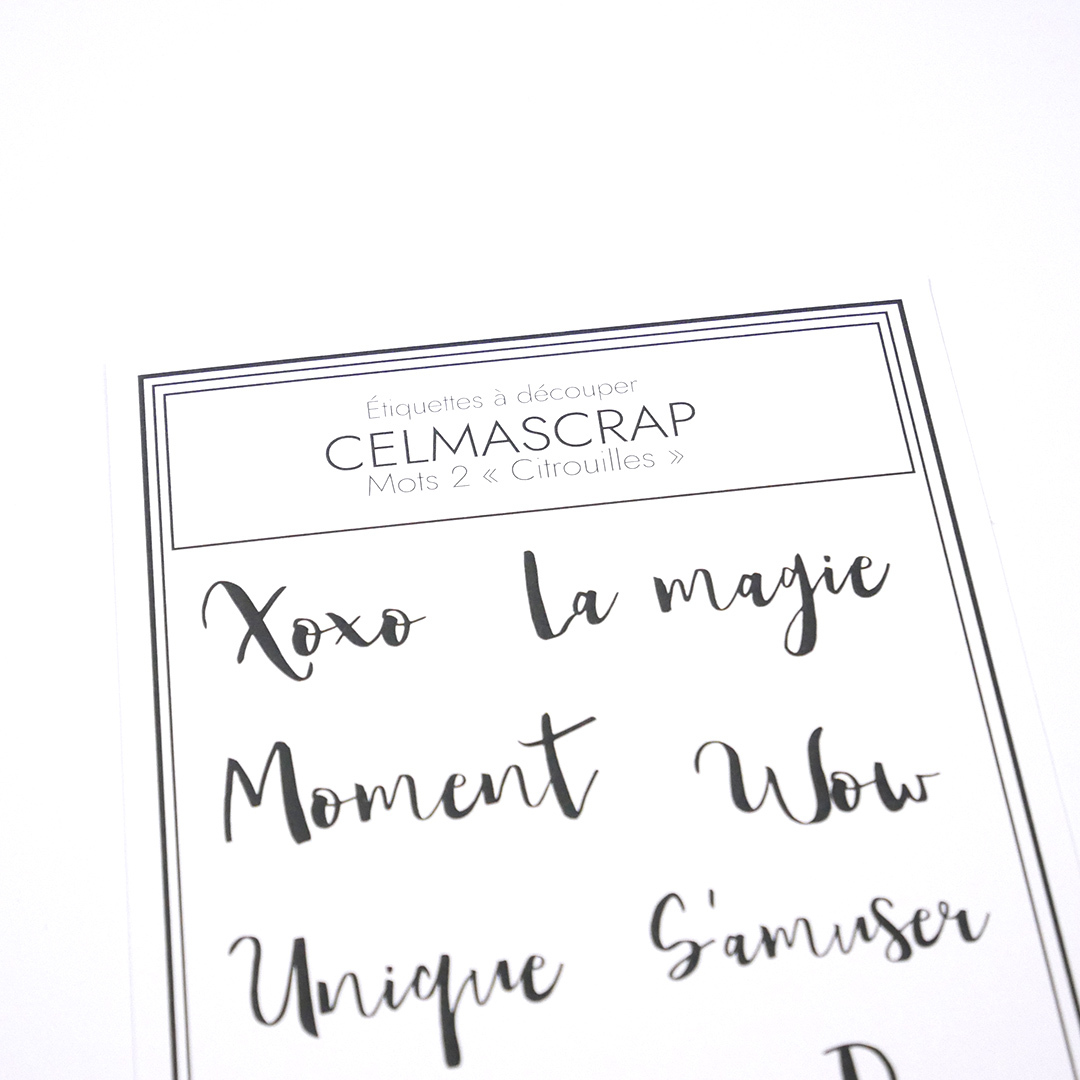 Étiquettes à découper
CELMASCRAP
Mots 2 « Citrouilles »
Xoxo La magie
Moment Wow
Unique S'amuser